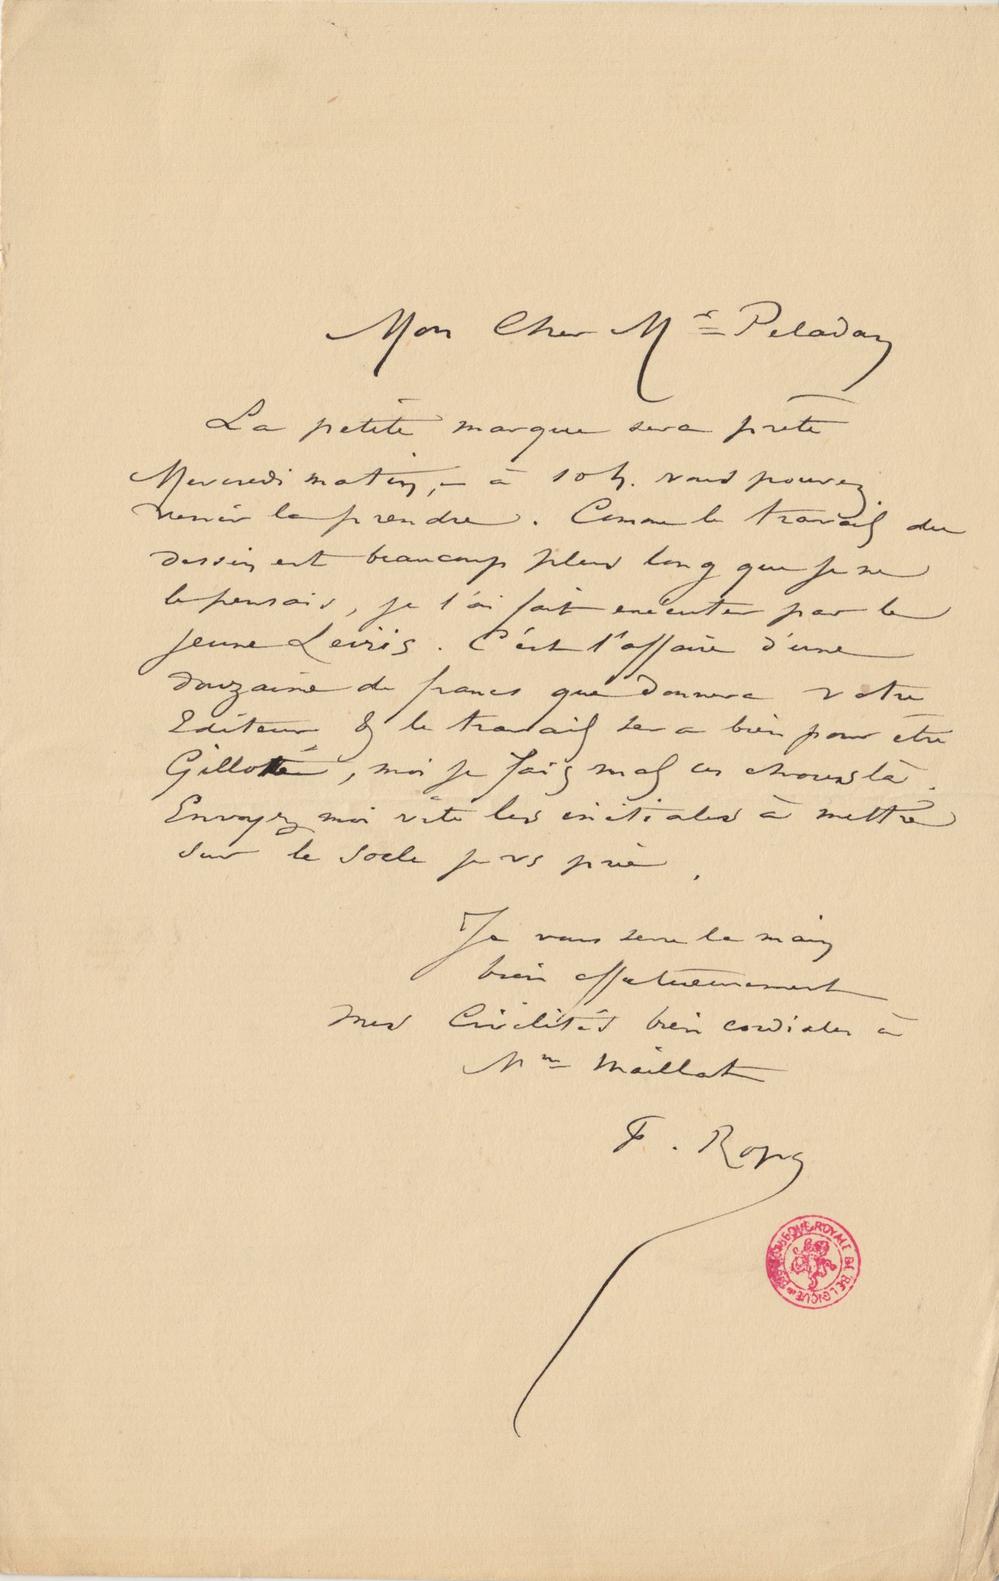 Mon Cher Mr Peladan
La petite marque sera prête
Mercredi matin, – à 10 h. vous pouvez
venir la prendre. Comme le travail du
dessin est beaucoup plus long que je ne
le pensais, je l'ai fait exécuter par le
jeune Leiris. C'est l'affaire d'une
douzaine de francs que donnera votre
Editeur & le travail sera bien pour être
Gillotté, moi je fais mal ces choses là.
Envoyez moi vite les initiales à mettre
sur le socle je vs prie,
Je vous serre la main
bien affectueusement
Mes Civilités bien cordiales à
Mme Maillat
F. Rops
BIBLIOTHEQUE ROYALE DE BELGIQUE